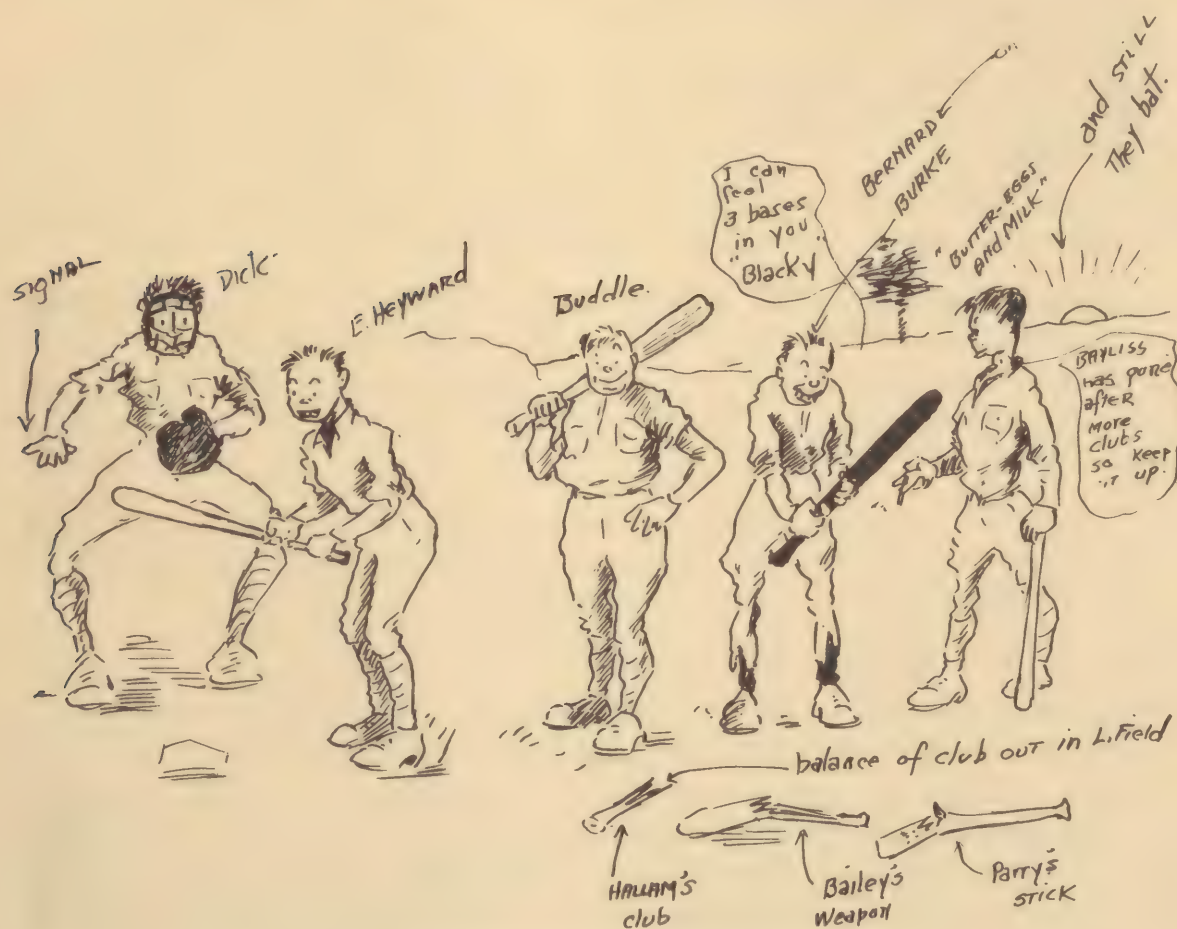 SIGNAL
DICK
E. HEYWARD
Buddle.
I can
feel
3 bases
in you
"Blacky"
BERNARD
BURKE
"BUTTER-EGGS
AND MILK"
and STILL
They bat.
BAYLISS
has gone
after
more
clubs
so keep
it up.
balance of club out in L. Field
HALLAM'S
club
Bailey's
Weapon
Parry's
STICK